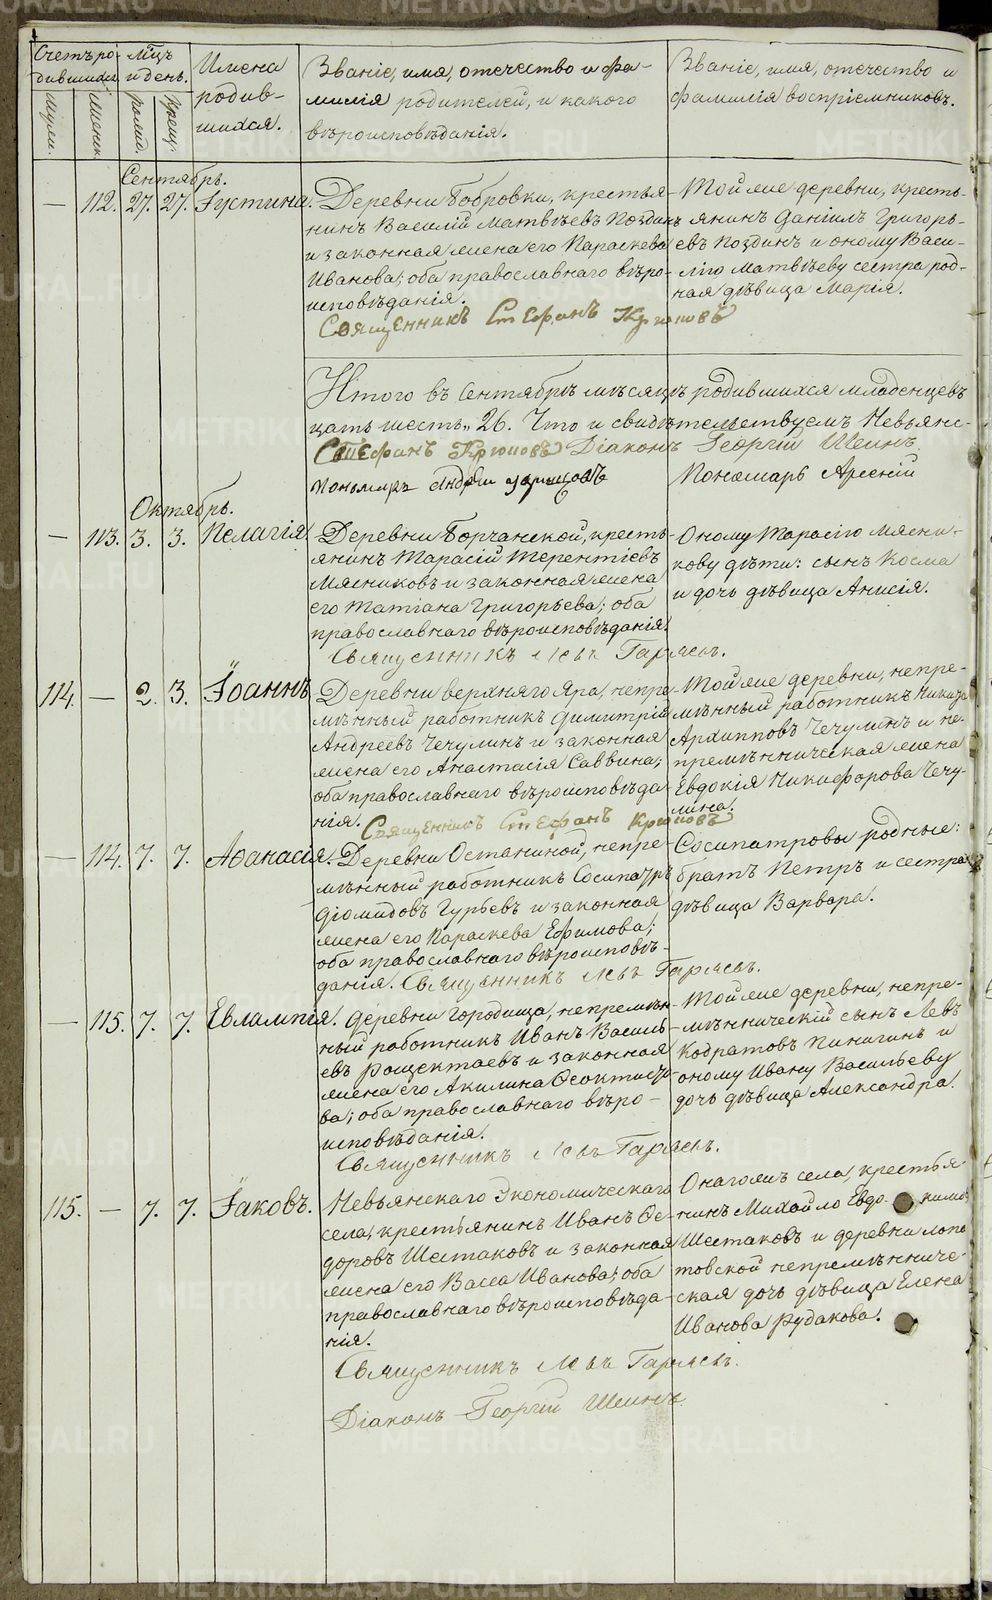 Счетъ ро-
дившихся
Мѣсяцъ
и день.
Мужеск.
Женск.
рожд.
крещ.
Имена
родив-
шихся.
Званіе, имя, отечество и фа-
милія родителей, и какого
вѣроисповѣданія.
Званіе, имя, отечество и
фамилія воспріемниковъ.
Сентябрь.
— 112. 27. 27. Іустина.
Деревни Бобровки, крестья-
нинъ Василій Матвѣевъ Поздинъ
и законная жена его Параскева
Иванова; оба православнаго вѣро-
исповѣданія.
Той же деревни, кресть-
янинъ Даніилъ Григорь-
евъ Поздинъ и оному Васи-
лію Матвѣеву сестра род-
ная дѣвица Марія.
Священникъ Стефанъ Крюковъ
Итого въ Сентябрѣ мѣсяцѣ родившихся младенцевъ
цать шесть „ 26. Что и свидѣтельствуемъ Невьянс-
Стефанъ Крюковъ Діаконъ Георгій Шеинъ
Пономарь Андрей
Пономарь Арсеній
Октябрь.
— 113. 3. 3. Пелагія.
Деревни Борчанской, кресть-
янинъ Тарасій Терентіевъ
Мясниковъ и законная жена
его Татіана Григорьева; оба
православнаго вѣроисповѣданія.
Оному Тарасію Мясни-
кову дѣти: сынъ Косма
и дочь дѣвица Анисія.
Священникъ Левъ Гаряевъ.
114. — 2. 3. Іоаннъ.
Деревни верхняго Яра, непре-
мѣнный работникъ Димитрій
Андреевъ Чечулинъ и законная
жена его Анастасія Саввина;
оба православнаго вѣроисповѣда-
нія.
Той же деревни, непре-
мѣнный работникъ Никита
Архипповъ Чечулинъ и не-
премѣнническая жена
Евдокія Никифорова Чечу-
лина.
Священникъ Стефанъ Крюковъ
— 114. 7. 7. Аѳанасія.
Деревни Останиной, непре-
мѣнный работникъ Сосипатръ
Діомидовъ Гурьевъ и законная
жена его Параскева Ефимова;
оба православнаго вѣроисповѣ-
данія. Священникъ Левъ Гаряевъ.
Сосипатровы родные:
братъ Петръ и сестра
дѣвица Варвара.
— 115. 7. 7. Евлампія.
Деревни Городища, непремѣн-
ный работникъ Иванъ Василь-
евъ Рощектаевъ и законная
жена его Акилина Ѳеоктисто-
ва; оба православнаго вѣро-
исповѣданія.
Той же деревни, непре-
мѣнническій сынъ Левъ
Кодратовъ Пинагинъ и
оному Ивану Васильеву
дочь дѣвица Александра.
Священникъ Левъ Гаряевъ.
115. — 7. 7. Іаковъ.
Невьянскаго Экономическаго
села, крестьянинъ Иванъ Ѳе-
доровъ Шестаковъ и законная
жена его Васса Иванова; оба
православнаго вѣроисповѣда-
нія.
Онагожъ села, крестья-
нинъ Михайло Евдокимовъ
Шестаковъ и деревни Лопа
товской непремѣнниче-
ская дочь дѣвица Елена
Иванова Рудакова.
Священникъ Левъ Гаряевъ.
Діаконъ Георгій Шеинъ
METRIKI.GASO-URAL.RU